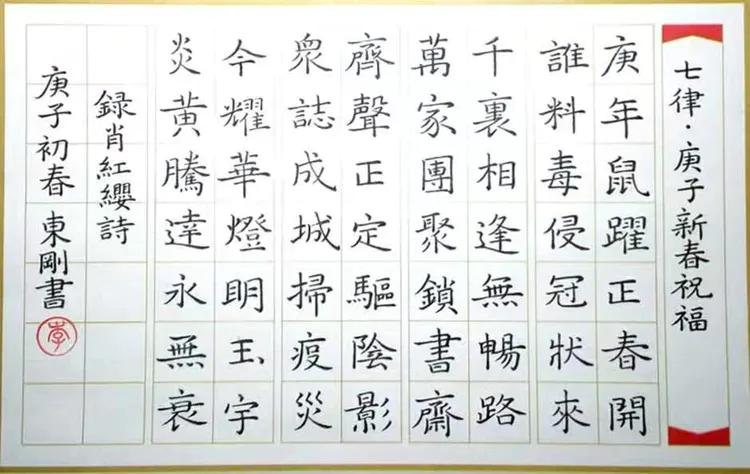 七律·庚子新春祝福
庚年鼠躍正春開
誰料毒侵冠狀來
千裏相逢無暢路
萬家團聚鎖書齋
齊聲正定驅陰影
眾誌成城掃疫災
今耀華燈明玉宇
炎黃騰達永無衰
録肖紅纓詩
庚子初春東剛書
李